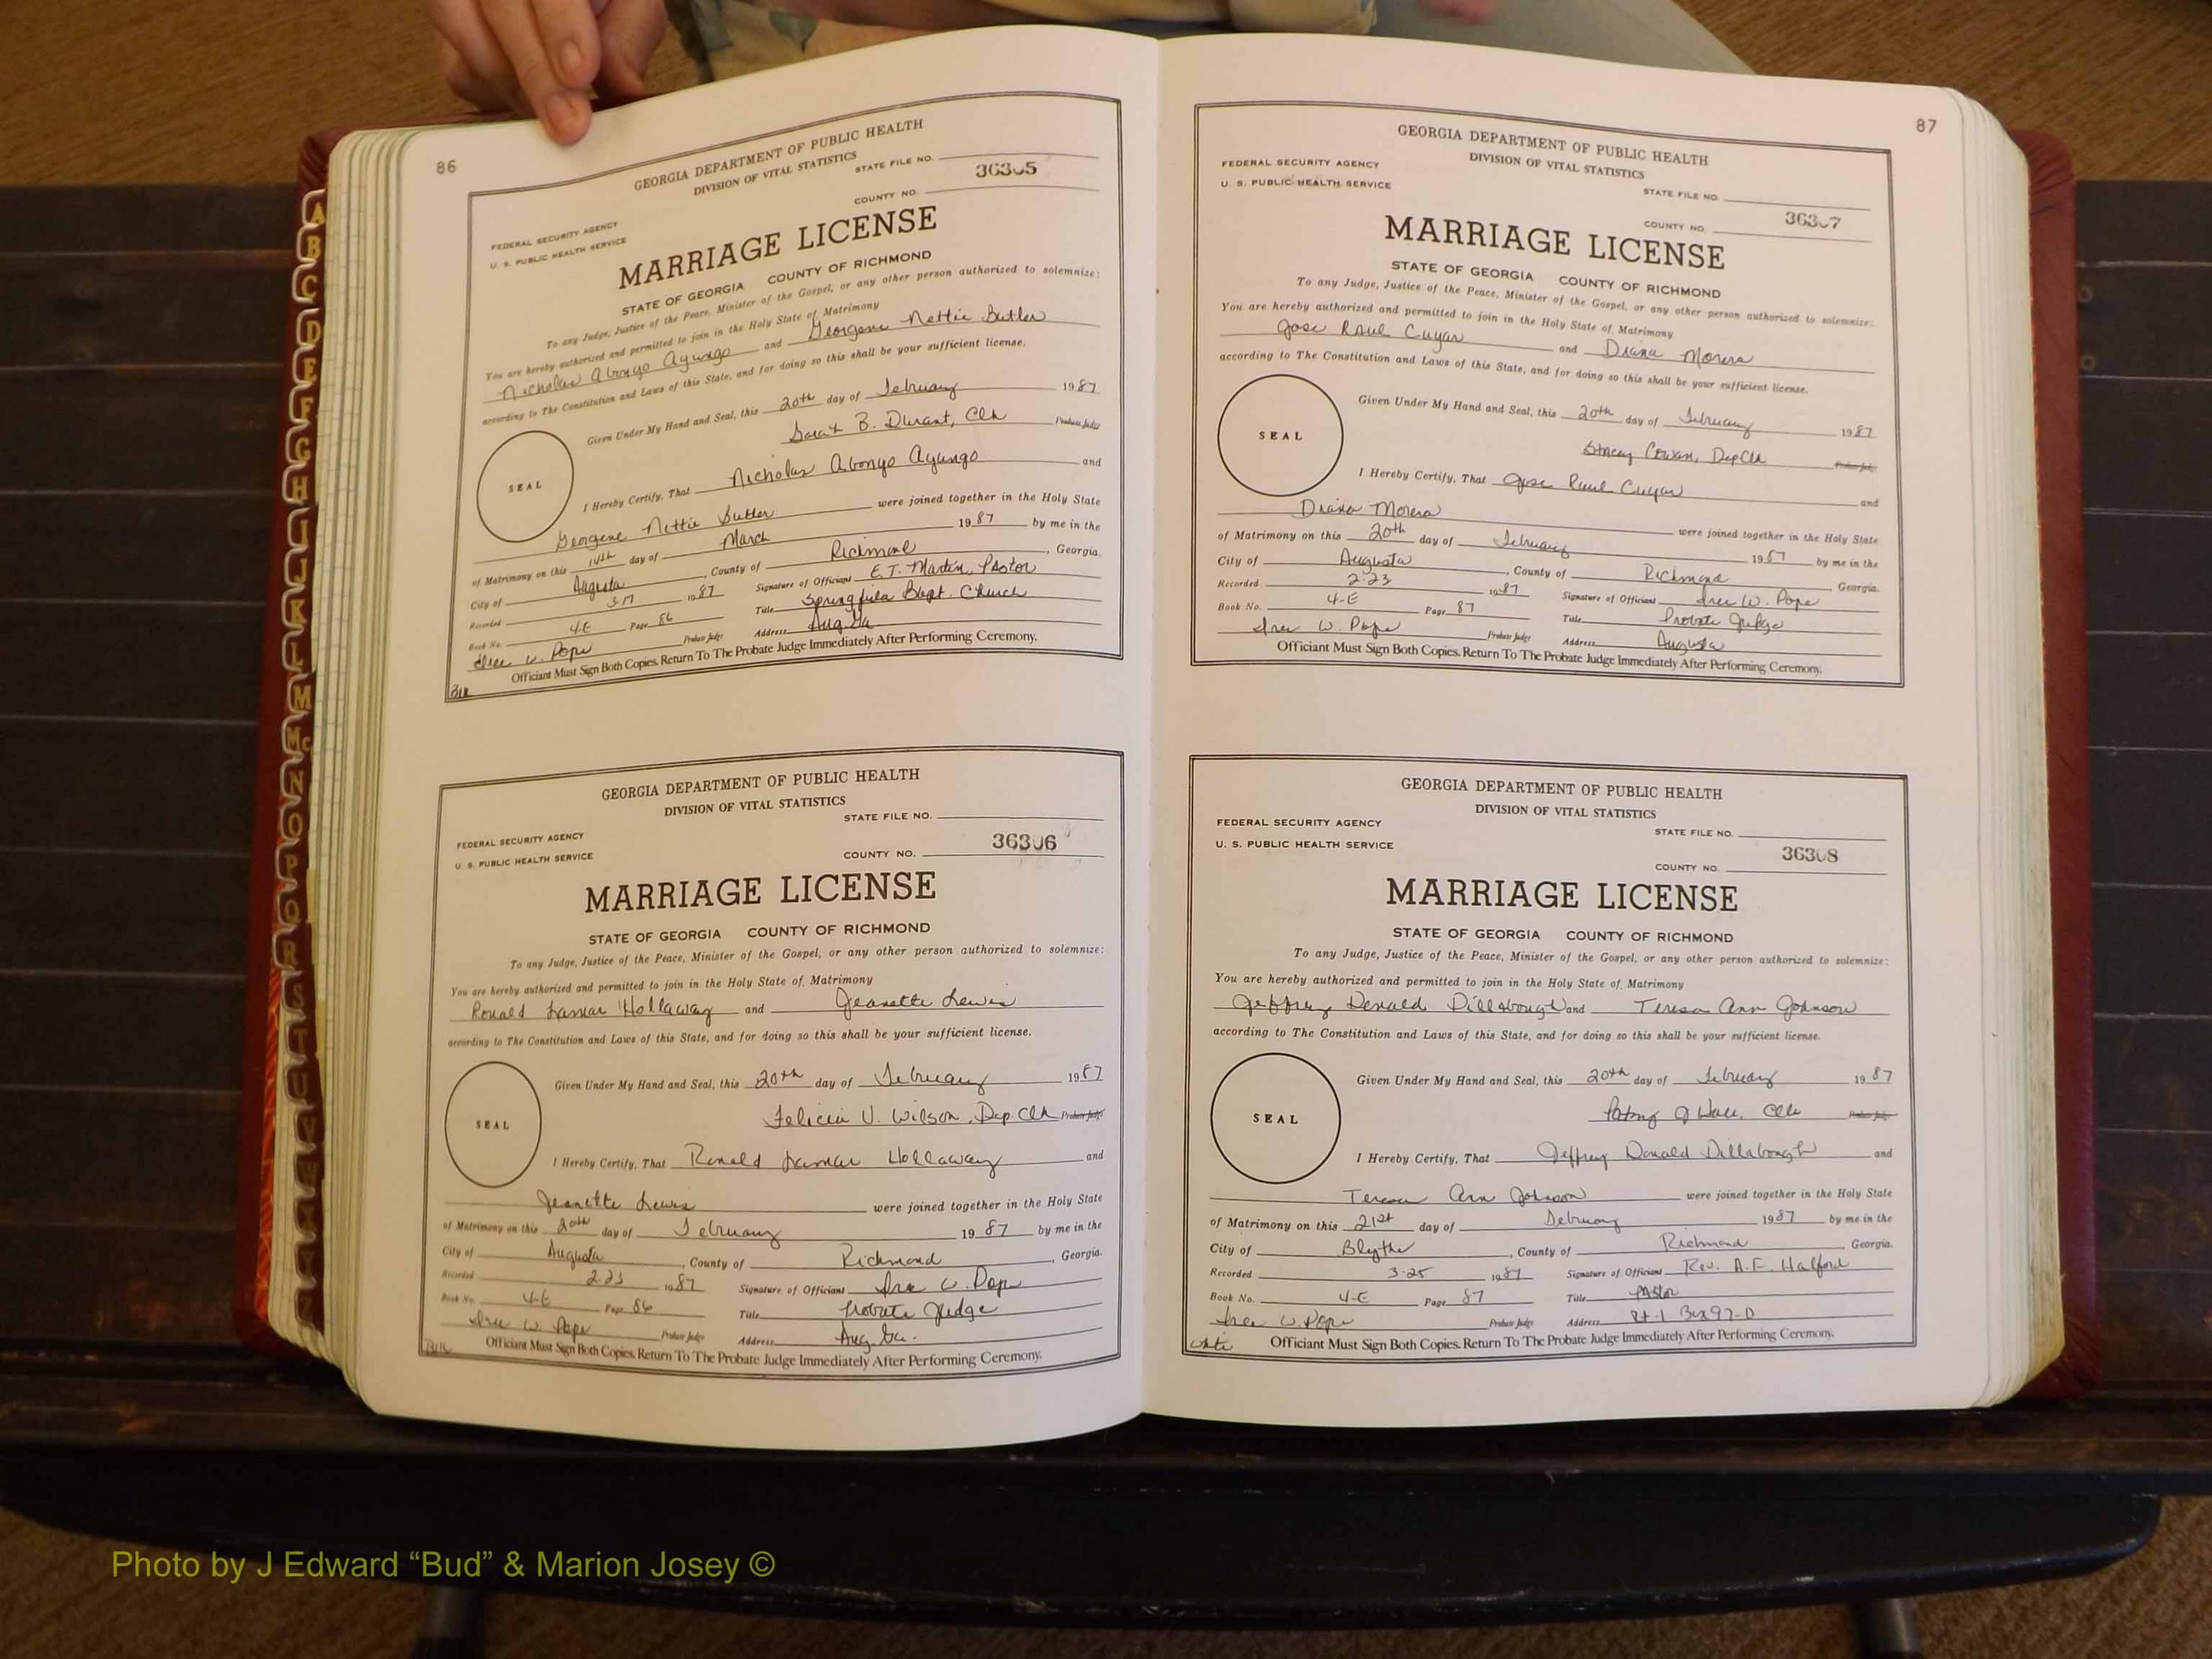 86
GEORGIA DEPARTMENT OF PUBLIC HEALTH
DIVISION OF VITAL STATISTICS
STATE FILE NO.
36305
COUNTY NO.
FEDERAL SECURITY AGENCY
U. S. PUBLIC HEALTH SERVICE
MARRIAGE LICENSE
STATE OF GEORGIA COUNTY OF RICHMOND
To any Judge, Justice of the Peace, Minister of the Gospel, or any other person authorized to solemnize:
You are hereby authorized and permitted to join in the Holy State of Matrimony
Nicholas Abonyo Ayungo and Georgene Nettie Butler
according to The Constitution and Laws of this State, and for doing so this shall be your sufficient license.
Given Under My Hand and Seal, this 20th day of February 1987
Sarah B. Durant, Clk Probate Judge
SEAL
I Hereby Certify, That Nicholas Abonyo Ayungo and
Georgene Nettie Butler were joined together in the Holy State
of Matrimony on this 14th day of March 1987 by me in the
City of Augusta, County of Richmond, Georgia.
Recorded 3-17 1987 Signature of Officiant E. T. Martin, Pastor
Book No. 4-E Page 86 Title Springfield Bapt. Church
Probate Judge Address Aug. Ga.
Officiant Must Sign Both Copies. Return To The Probate Judge Immediately After Performing Ceremony.
GEORGIA DEPARTMENT OF PUBLIC HEALTH
DIVISION OF VITAL STATISTICS
STATE FILE NO.
FEDERAL SECURITY AGENCY
36306
U. S. PUBLIC HEALTH SERVICE
COUNTY NO.
MARRIAGE LICENSE
STATE OF GEORGIA COUNTY OF RICHMOND
To any Judge, Justice of the Peace, Minister of the Gospel, or any other person authorized to solemnize:
You are hereby authorized and permitted to join in the Holy State of Matrimony
Ronald Lamar Hollaway and Jeanette Lewis
according to The Constitution and Laws of this State, and for doing so this shall be your sufficient license.
Given Under My Hand and Seal, this 20th day of February 1987
Felicia V. Wilson, Dep. Clk Probate Judge
SEAL
I Hereby Certify, That Ronald Lamar Hollaway and
Jeanette Lewis were joined together in the Holy State
of Matrimony on this 20th day of February 1987 by me in the
City of Augusta, County of Richmond, Georgia.
Recorded 2-23 1987 Signature of Officiant W. Pope
Book No. 4-E Page 86 Title Probate Judge
W. Pope Probate Judge Address Aug. Ga.
Officiant Must Sign Both Copies. Return To The Probate Judge Immediately After Performing Ceremony.
87
GEORGIA DEPARTMENT OF PUBLIC HEALTH
DIVISION OF VITAL STATISTICS
FEDERAL SECURITY AGENCY
U. S. PUBLIC HEALTH SERVICE
STATE FILE NO.
36307
COUNTY NO.
MARRIAGE LICENSE
STATE OF GEORGIA COUNTY OF RICHMOND
To any Judge, Justice of the Peace, Minister of the Gospel, or any other person authorized to solemnize:
You are hereby authorized and permitted to join in the Holy State of Matrimony
Jose Raul Cuyar and Diana Morera
according to The Constitution and Laws of this State, and for doing so this shall be your sufficient license.
Given Under My Hand and Seal, this 20th day of February 1987
Stacey Cowan, Dep Clk Probate Judge
SEAL
I Hereby Certify, That Jose Raul Cuyar and
Diana Morera were joined together in the Holy State
of Matrimony on this 20th day of February 1987 by me in the
City of Augusta, County of Richmond, Georgia.
Recorded 2-23 1987 Signature of Officiant W. Pope
Book No. 4-E Page 87 Title Probate Judge
W. Pope Probate Judge Address Augusta
Officiant Must Sign Both Copies. Return To The Probate Judge Immediately After Performing Ceremony.
GEORGIA DEPARTMENT OF PUBLIC HEALTH
DIVISION OF VITAL STATISTICS
FEDERAL SECURITY AGENCY
STATE FILE NO.
U. S. PUBLIC HEALTH SERVICE
36308
COUNTY NO.
MARRIAGE LICENSE
STATE OF GEORGIA COUNTY OF RICHMOND
To any Judge, Justice of the Peace, Minister of the Gospel, or any other person authorized to solemnize:
You are hereby authorized and permitted to join in the Holy State of Matrimony
Jeffrey Donald Dillabough and Teresa Ann Johnson
according to The Constitution and Laws of this State, and for doing so this shall be your sufficient license.
Given Under My Hand and Seal, this 20th day of February 1987
Probate Judge
SEAL
I Hereby Certify, That Jeffrey Donald Dillabough and
Teresa Ann Johnson were joined together in the Holy State
of Matrimony on this 21st day of February 1987 by me in the
City of Blythe, County of Richmond Georgia.
Recorded 3-25 1987 Signature of Officiant Rev. A. F. Halford
Book No. 4-E Page 87 Title Pastor
W. Pope Probate Judge Address Rt-1 Box 97-D
Officiant Must Sign Both Copies. Return To The Probate Judge Immediately After Performing Ceremony.
A
B
C
D
E
F
G
H
I
J
K
L
M
Mc
N
O
P
Q
R
S
T
U
Photo by J Edward “Bud” & Marion Josey ©